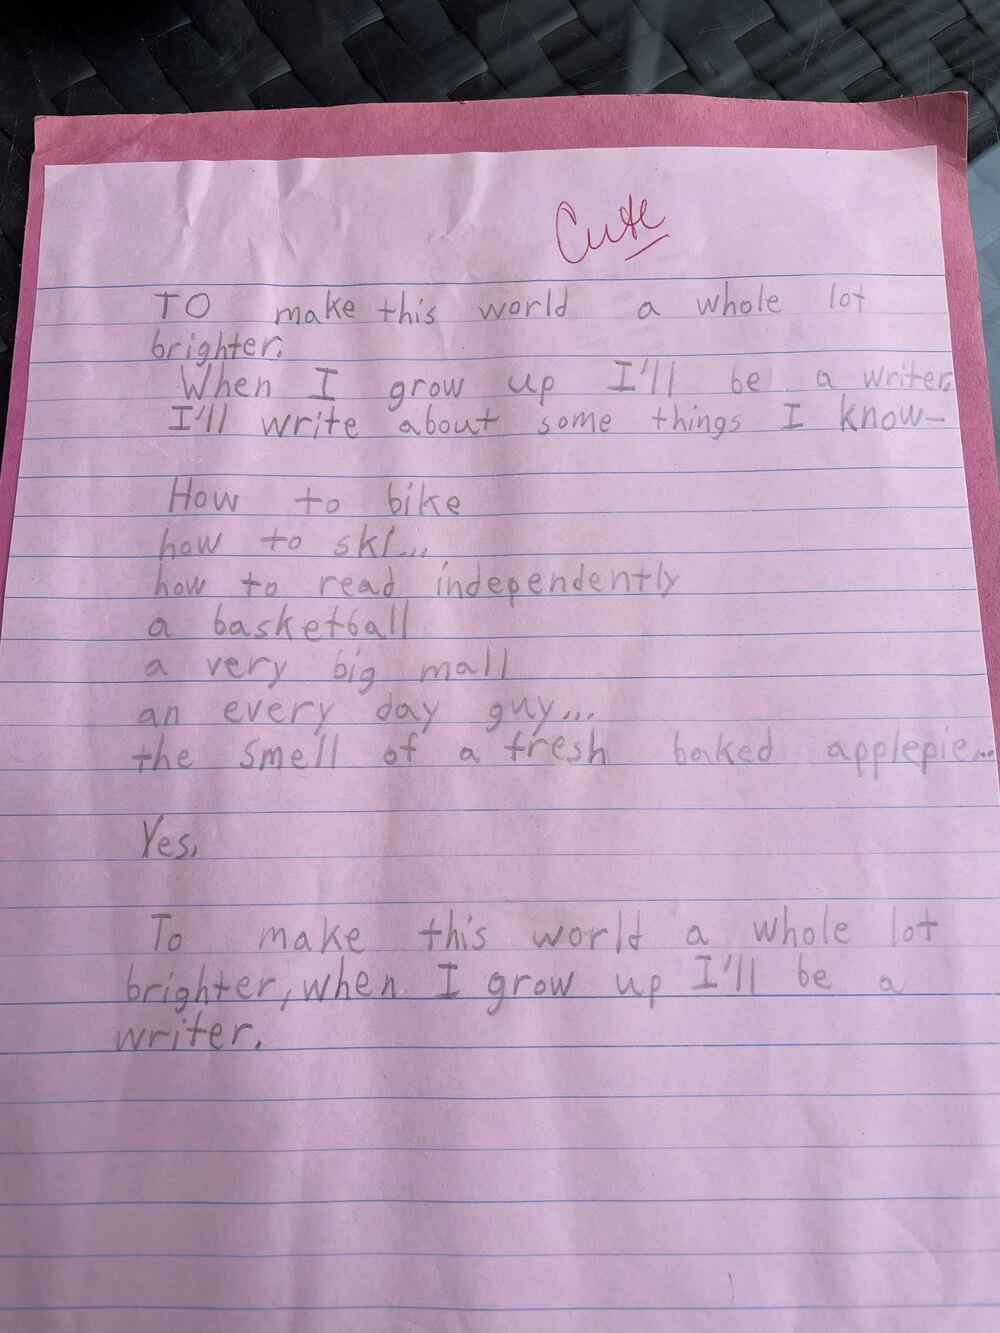 Cute
TO make this world a whole lot
brighter.
When I grow up I'll be a writer.
I'll write about some things I know-
How to bike
how to ski...
how to read independently
a basketball
a very big mall
an every day guy...
the smell of a fresh baked applepie...
Yes,
To make this world a whole lot
brighter, when I grow up I'll be a
writer.